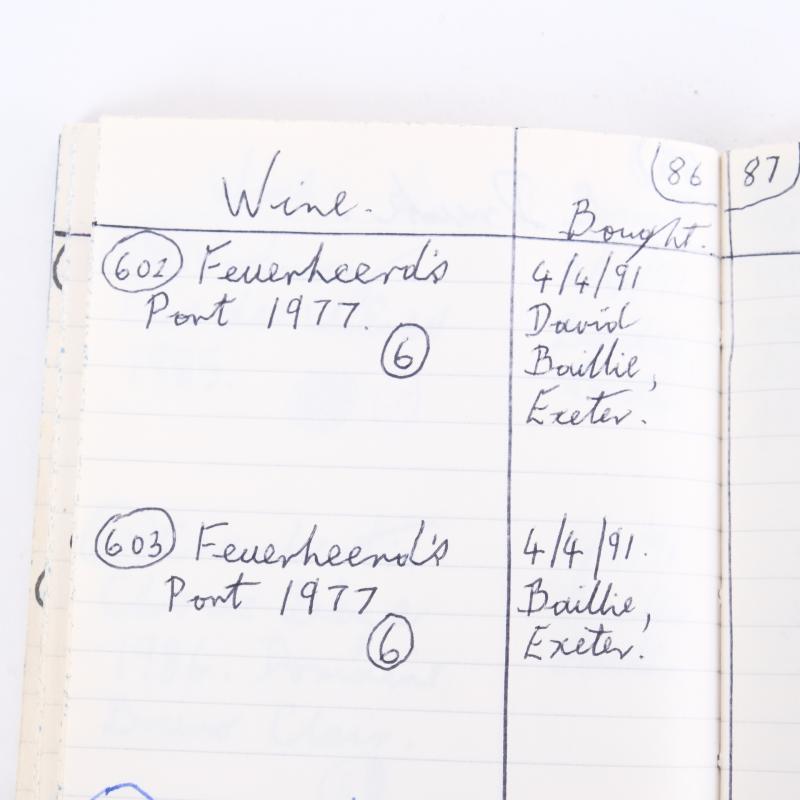 86
87
Wine.
Bought.
602 Feuerheerd's
Port 1977.
6
4/4/91
David
Baillie,
Exeter.
603 Feuerheerd's
Port 1977
6
4/4/91.
Baillie,
Exeter.